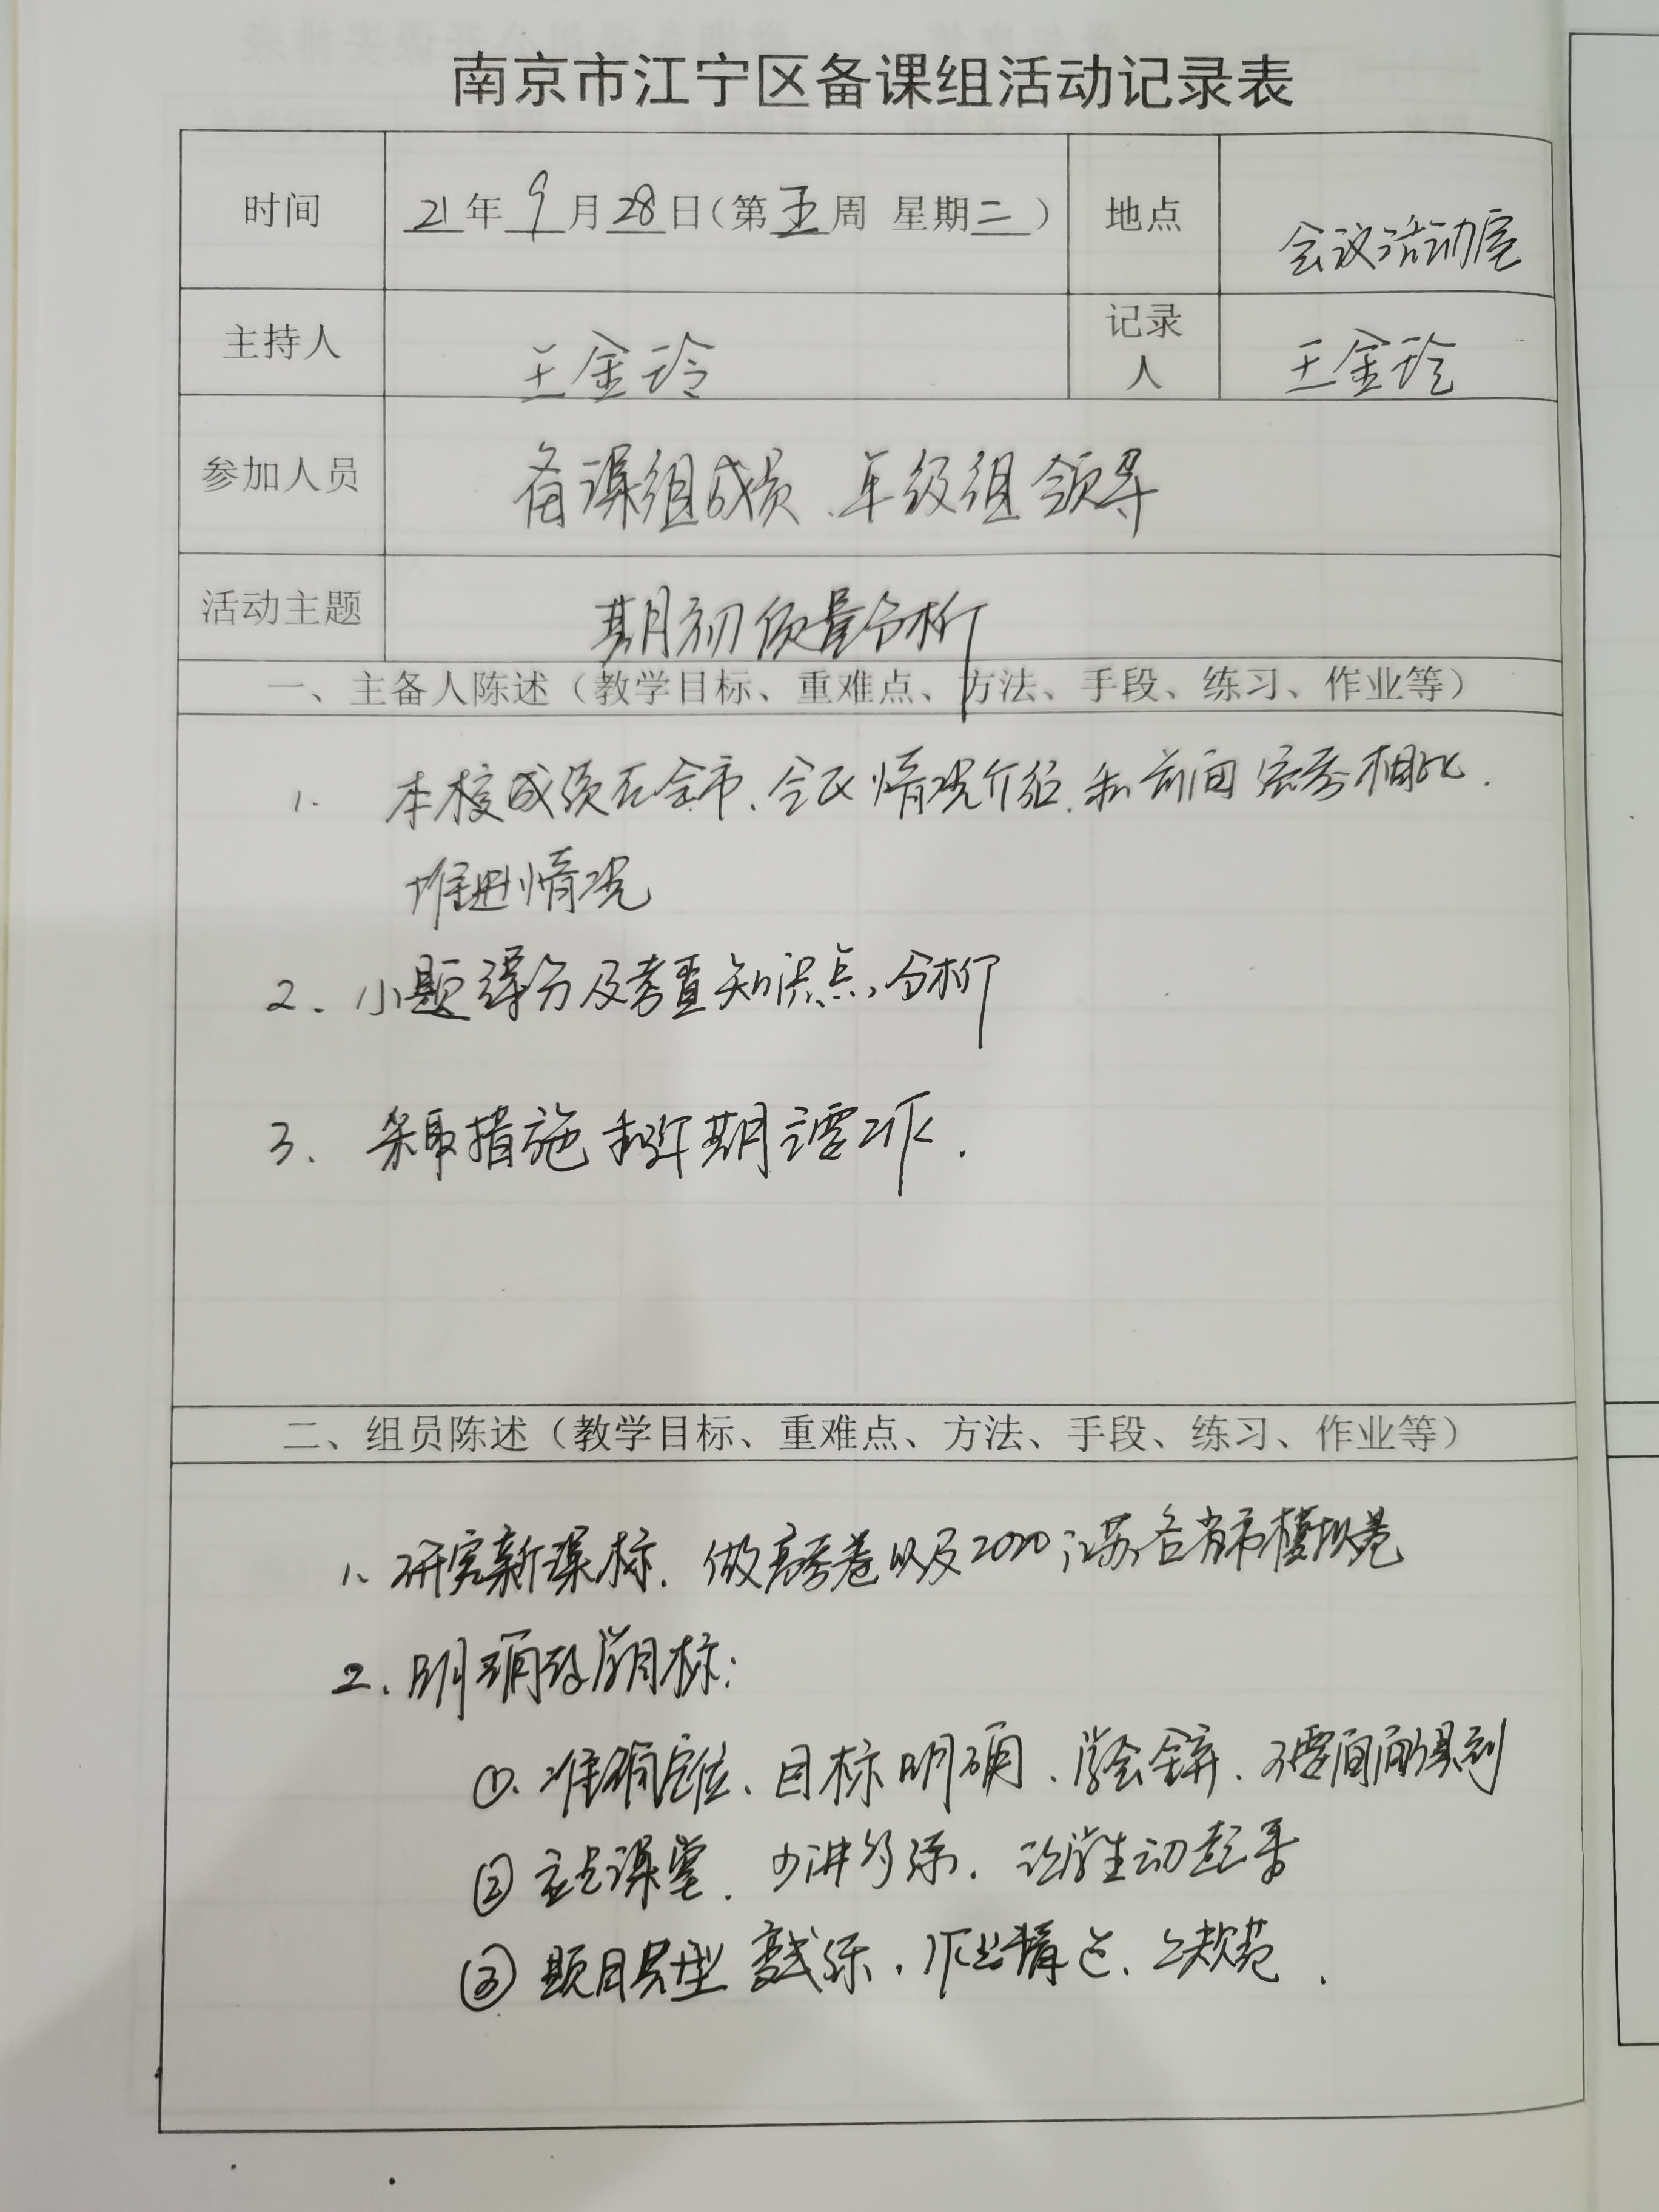 南京市江宁区备课组活动记录表
时间 21年9月28日(第五周 星期二) 地点 会议活动室
主持人 王金玲 记录人 王金玲
参加人员 备课组成员、年级组领导
活动主题 期初质量分析
一、主备人陈述(教学目标、重难点、方法、手段、练习、作业等)
1. 本校成绩在全市、全区情况介绍、和前面高考相比.
推进情况
2. 小题得分及考查知识点分析
3、采取措施和近期主要工作.
二、组员陈述(教学目标、重难点、方法、手段、练习、作业等)
1、研究新课标、做高考卷以及2020江苏各省市模拟卷
2、明确教学目标:
①、准确定位、目标明确、学会舍弃、不要面面俱到
② 立足课堂、少讲多练、让学生动起来
③ 题目典型 变式练,作业精选、规范.